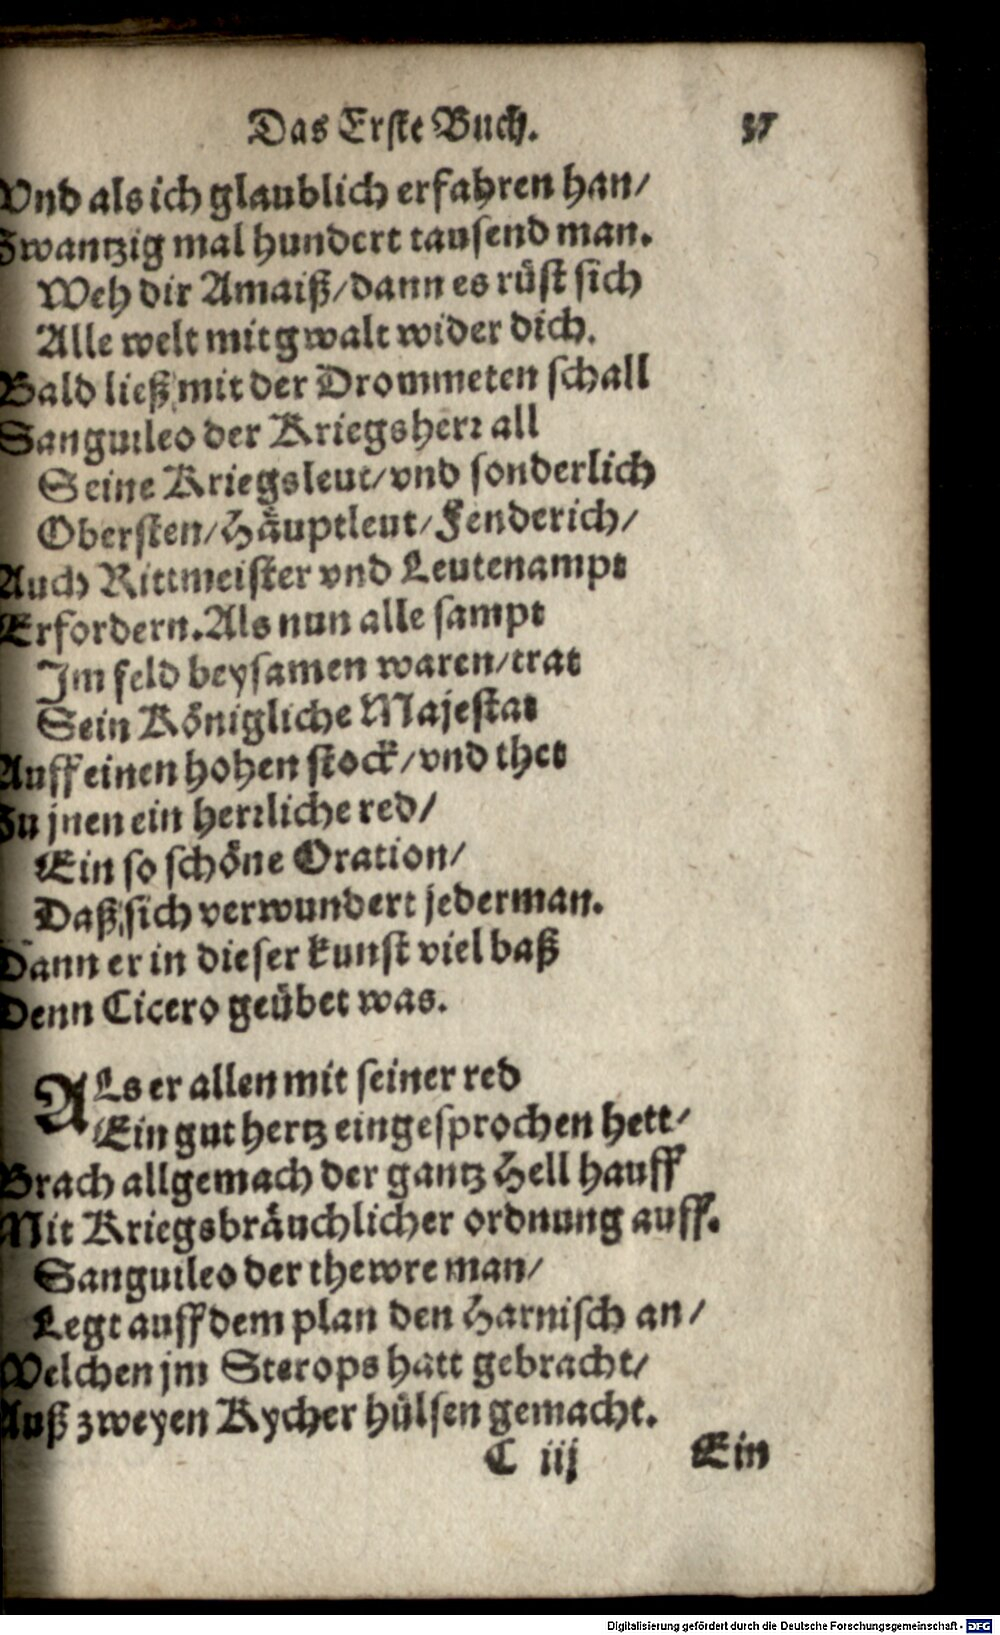 Das Erste Buch. 37
Vnd als ich glaublich erfahren han/
Zwantzig mal hundert tausend man.
Weh dir Amaiß/dann es rüst sich
Alle welt mit gwalt wider dich.
Bald ließ mit der Drommeten schall
Sanguileo der Kriegsherr all
Seine Kriegsleut/vnd sonderlich
Obersten/Häuptleut/Fenderich/
Auch Rittmeister vnd Leutenampt
Erfordern. Als nun alle sampt
Im feld beysamen waren/trat
Sein Königliche Majestat
Auff einen hohen stock/vnd thet
Zu jnen ein herrliche red/
Ein so schöne Oration/
Daß sich verwundert jederman.
Dann er in dieser kunst viel baß
Denn Cicero geübet was.
ALs er allen mit seiner red
Ein gut hertz eingesprochen hett/
Brach allgemach der gantz Hell hauff
Mit Kriegsbräuchlicher ordnung auff.
Sanguileo der thewre man/
Legt auff dem plan den Harnisch an/
Welchen jm Sterops hatt gebracht/
Auß zweyen Kycher hülsen gemacht.
C iij Ein
Digitalisierung gefördert durch die Deutsche Forschungsgemeinschaft - DFG